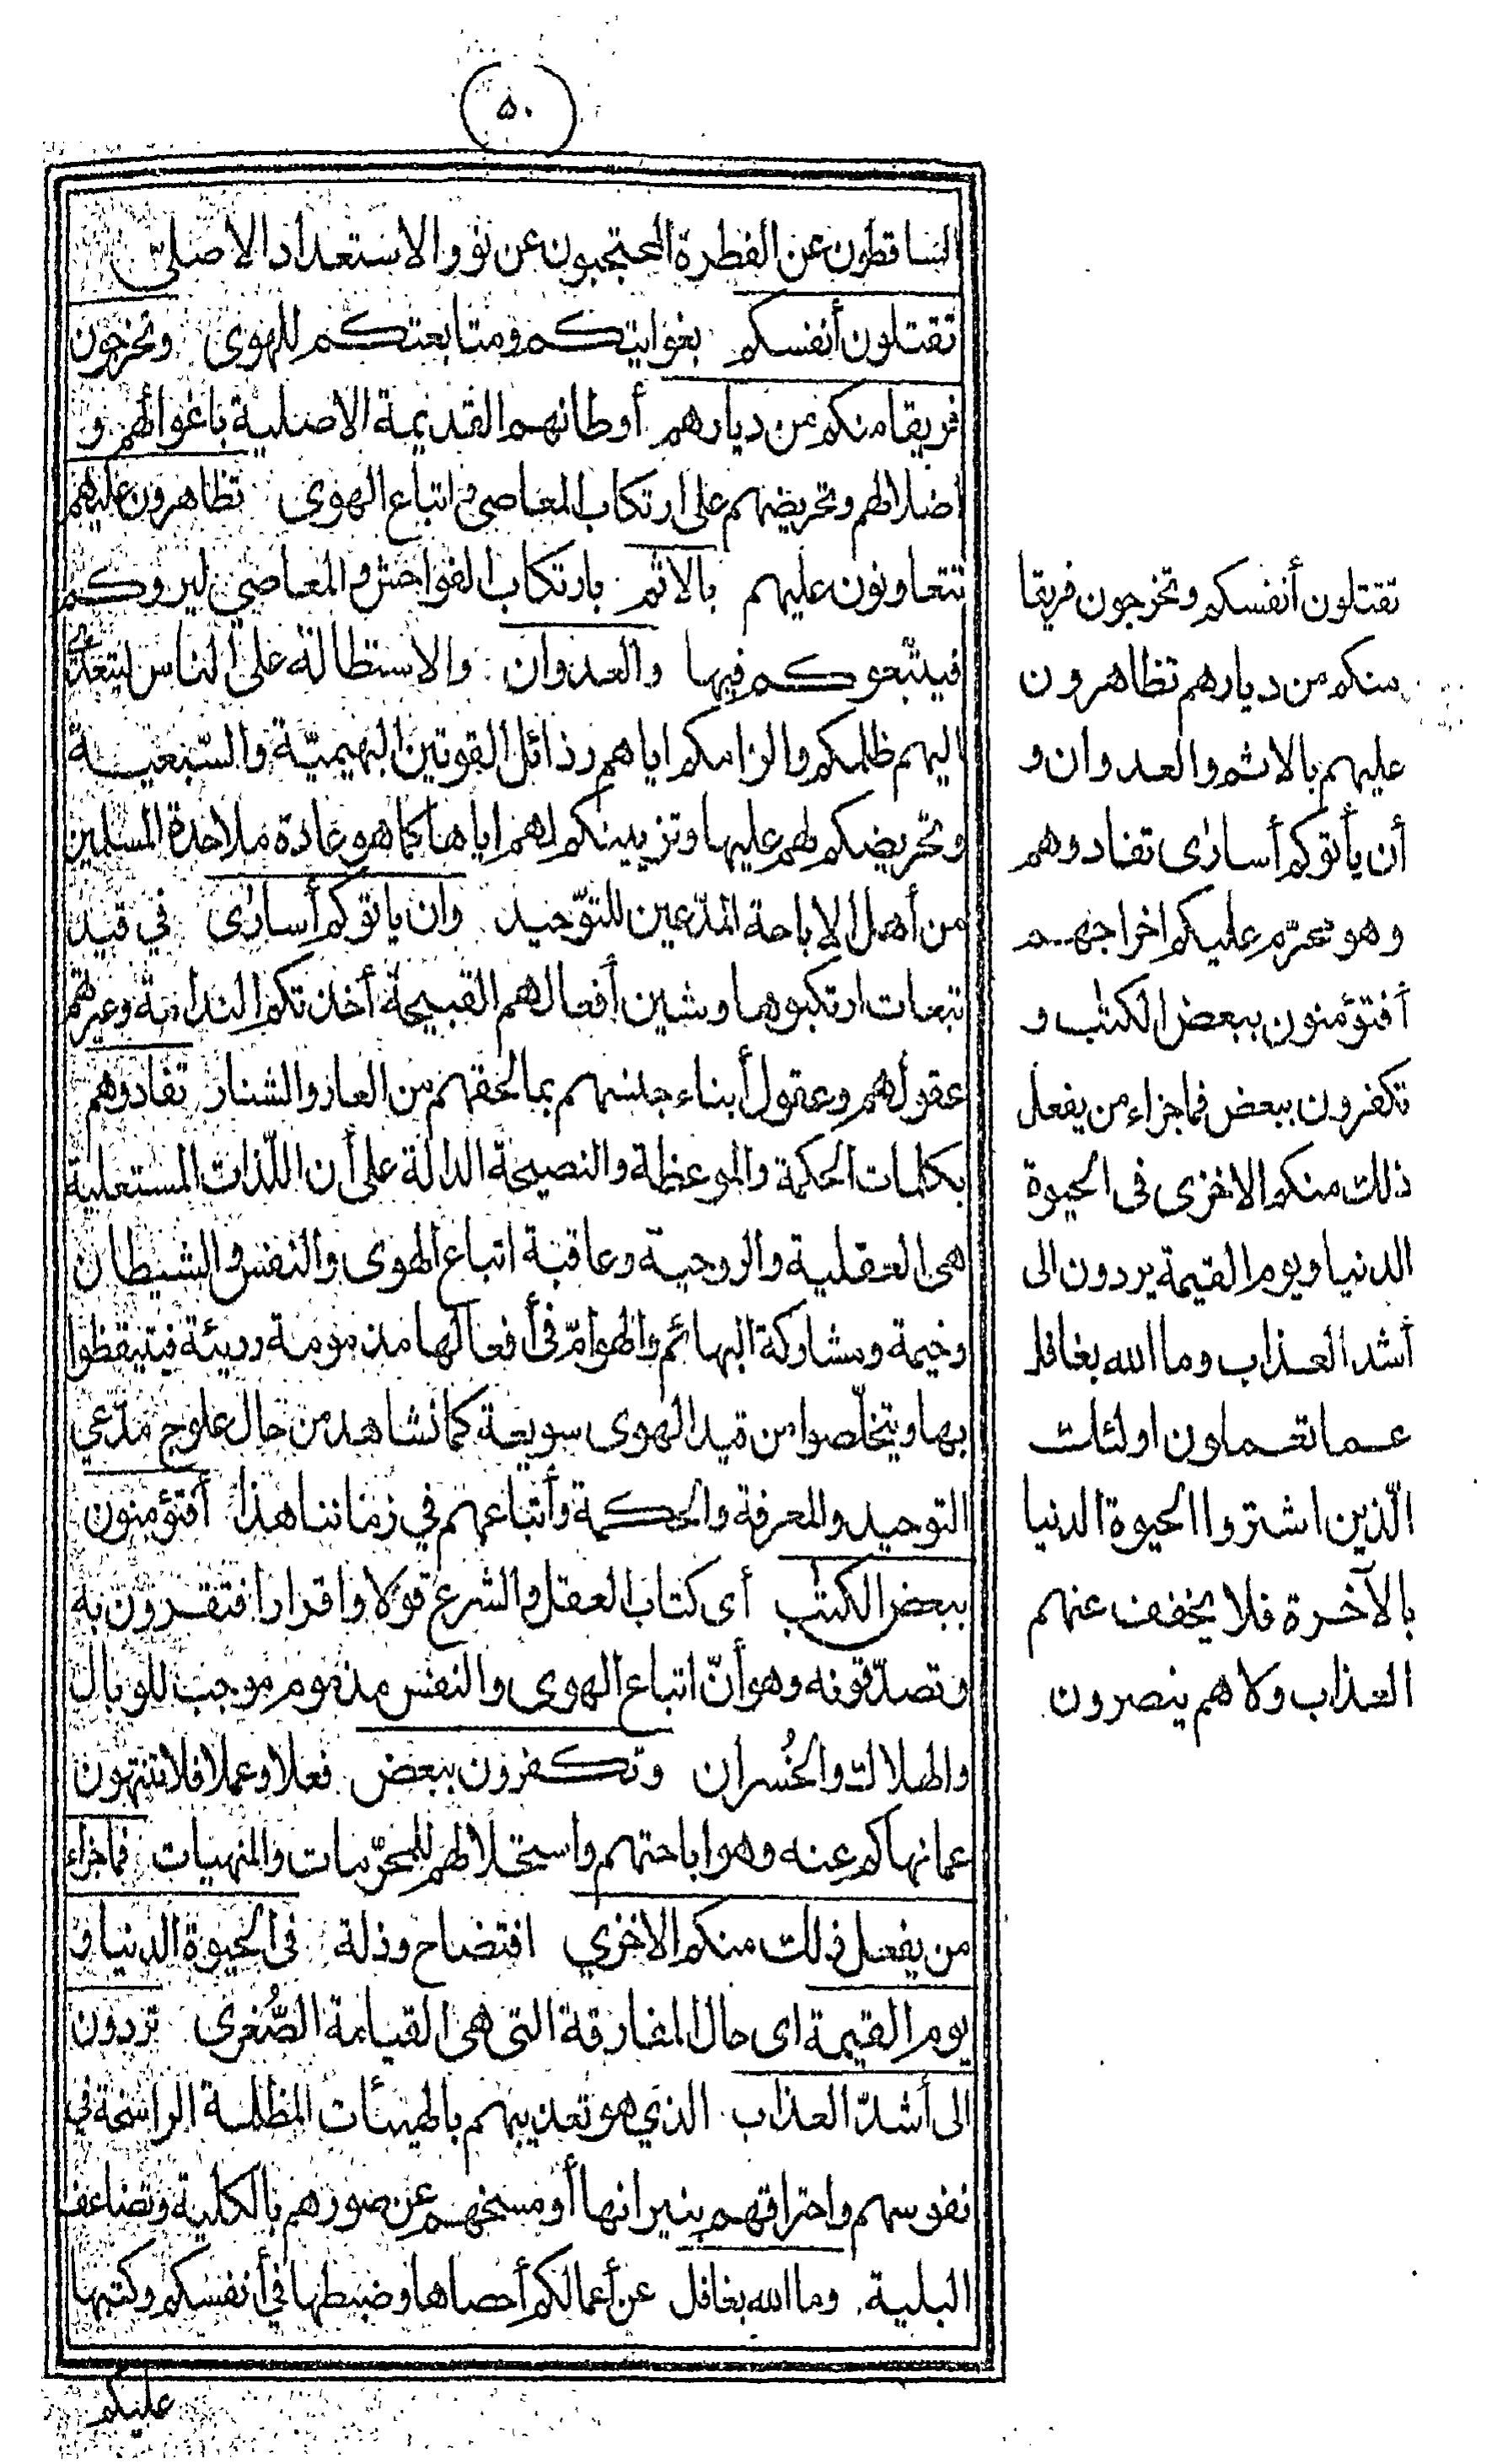 ٥٠
الساقطون عن الفطرة المحتجبون عن نور الاستعداد الاصلى
تقتلون أنفسكم بغوايتكم ومتابعتكم للهوى وتخرجون
فريقا منكم من ديارهم أوطانهم القديمة الاصلية باغوائهم و
اضلالهم وتحريضهم على ارتكاب المعاصى واتباع الهوى تظاهرون عليهم
تتعاونون عليهم بالاثم بارتكاب الفواحش والمعاصي ليروكم
فيتبعوكم فيها والعدوان والاستطالة على الناس ليتعدى
اليهم ظلمكم والزامكم اياهم رذائل القوتين البهيميّة والسّبعيــة
وتحريضكم لهم عليها وتزيينكم لهم اياها كما هو عادة ملاحدة المسلمين
من أهل الاباحة المدّعين للتوّحيد وان ياتوكم أسارٰى في قيد
تبعات ارتكبوها وشين أفعالهم القبيحة أخذتكم الندامة وعيرتهم
عقولهم وعقول أبناء جنسهم بما لحقهم من العار والشنار تفادوهم
بكلمات الحكمة والموعظة والنصيحة الدالة على أن اللّذات المستعلية
هى العقلية والروحية وعاقبة اتباع الهوى والنفس والشيطان
وخيمة ومشاركة البهائم والهوامّ في أفعالها مذمومة رديئة فتيقظوا
بها ويتخلّصوا من قيد الهوى سويعة كما نشاهد من حال علوج مدّعي
التوحيد والمعرفة والحكمة وأتباعهم في زماننا هذا أفتؤمنون
ببعض الكتٰب أى كتاب العقل والشرع قولا واقرارا فتقرون به
وتصدّقونه وهو أنّ اتباع الهوى والنفس مذموم موجب للوبال
والهلاك والخُسران وتكفرون ببعض فعلا وعملا فلا تنتهون
عما نهاكم عنه وهو اباحتهم واستحلالهم للمحرّمات والمنهيات فما جزاء
من يفعل ذلك منكم الاخزي افتضاح وذلة فى الحيوة الدنيا و
يوم القيمة اى حال المفارقة التى هى القيامة الصُّغرى تردون
الى أشدّ العذاب الذي هو تعذيبهم بالهيئات المظلمة الراسخة في
نفوسهم واحتراقهم بنيرانها أو مسخهم عن صورهم بالكلية وتضاعف
البلية. وما الله بغافل عن أعمالكم أحصاها وضبطها في أنفسكم وكتبها
عليكم
تقتلون أنفسكم وتخرجون فريقا
منكم من ديارهم تظاهرون
عليهم بالاثم والعدوان و
أن يأتوكم أسارٰى تفادوهم
وهو محرّم عليكم اخراجهـم
أفتؤمنون ببعض الكتٰب و
تكفرون ببعض فما جزاء من يفعل
ذلك منكم الاخزى فى الحيوة
الدنيا ويوم القيمة يردون الى
أشد العذاب وما الله بغافل
عما تعملون اولئك
الّذين اشتروا الحيوة الدنيا
بالآخرة فلا يخفف عنهم
العذاب ولا هم ينصرون